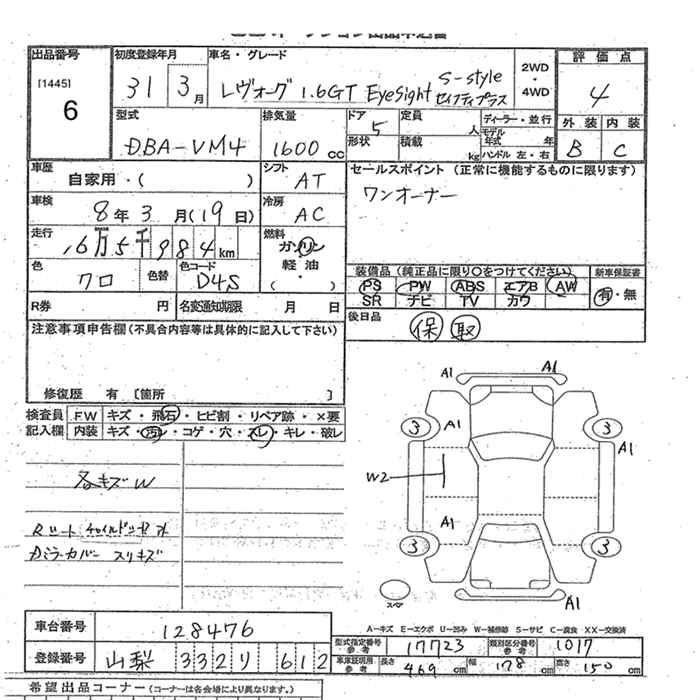 出品番号
[1445]
6
初度登録年月
31 3月
車名・グレード
レヴォーグ 1.6GT EyeSight S-style
セイフティプラス
2WD
・
4WD
評価点
4
外装 内装
B C
型式
DBA-VM4
排気量
1600cc
ドア
5
形状
定員
人
積載
kg
ディーラー・並行
モデル
年式 年
ハンドル 左・右
車歴
自家用・( )
シフト
AT
セールスポイント (正常に機能するものに限ります)
ワンオーナー
車検
8年3月(19日)
冷房
AC
走行
6万5千984km
燃料
ガソリン
軽油
・( )
色
クロ
色替
色コード
D4S
装備品(純正品に限り○をつけてください)
新車保証書
PS PW ABS エアB AW
SR ナビ TV カワ
有・無
R券 円
名変通知期限 月 日
後日品
保 取
注意事項申告欄(不具合内容等は具体的に記入して下さい)
修復歴 有〔箇所 〕
検査員
記入欄
F.W キズ・飛石・ヒビ割・リペア跡・×要
内装 キズ・汚レ・コゲ・穴・スレ・キレ・破レ
各キズW
スリキズ
A1 A1
A1
3 3
A1
W2
A1
3 3
A1
スペア
A-キズ E-エクボ U-凹み W-補修跡 S-サビ C-腐食 XX-交換済
車台番号
128476
登録番号
山梨 332 リ 612
型式指定番号
参考
17723
類別区分番号
参考
1017
車庫証明用
参考
長さ 469 cm
幅 178 cm
高さ 150 cm
希望出品コーナー(コーナーは各会場により異なります。)